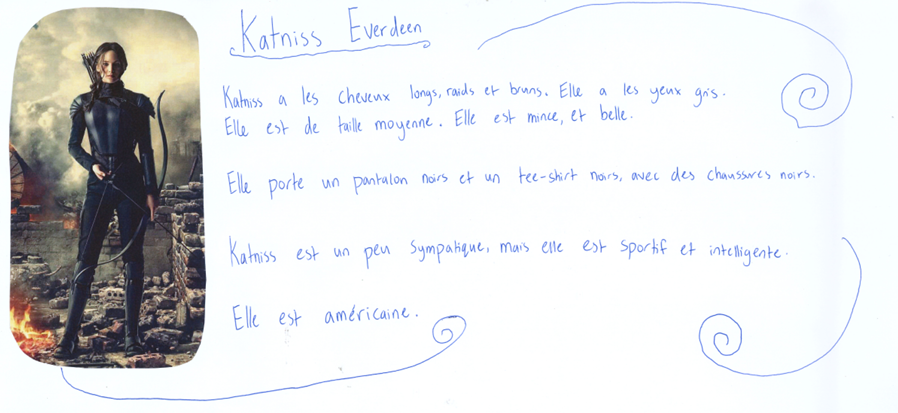 Katniss Everdeen
Katniss a les cheveux longs, raids et bruns. Elle a les yeux gris.
Elle est de taille moyenne. Elle est mince, et belle.
Elle porte un pantalon noirs et un tee-shirt noirs, avec des chaussures noirs.
Katniss est un peu sympatique, mais elle est sportif et intelligente.
Elle est américaine.